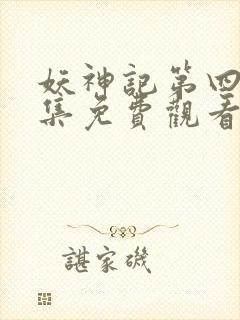 妖神記第四
集免費觀看
諶家磯